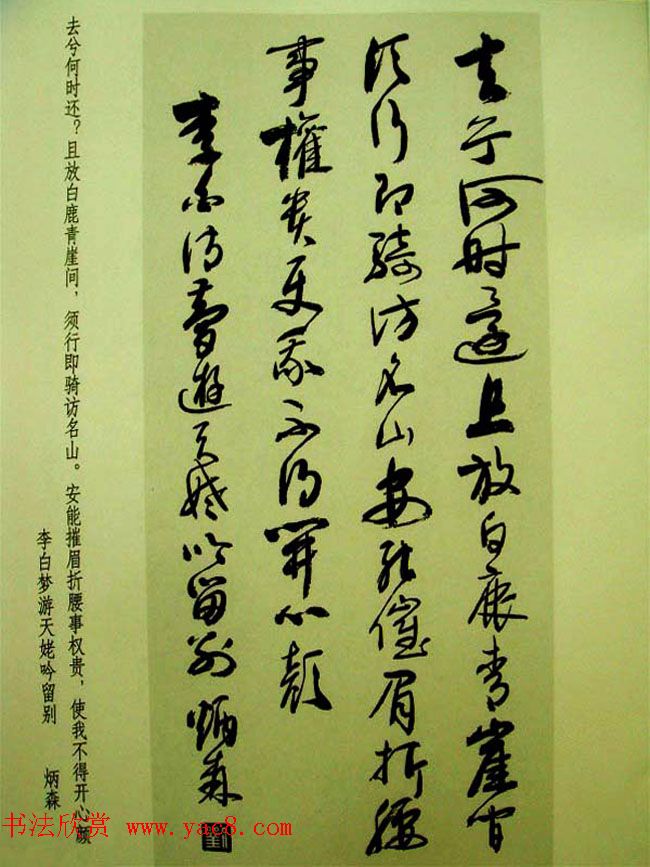 去兮何時還且放白鹿青崖間
須行即騎訪名山安能摧眉折腰
事權貴使我不得開心顏
李白詩夢遊天姥吟留別 炳森
去兮何时还？且放白鹿青崖间，须行即骑访名山。安能摧眉折腰事权贵，使我不得开心颜
李白梦游天姥吟留别 炳森
书法欣赏 www.yac8.com